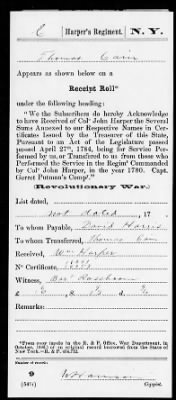 C Harper's Regiment. N. Y.
Thomas Cain
Appears as shown below on a
Receipt Roll*
under the following heading:
"We the Subscribers do hereby Acknowledge
to have Received of Colº John Harper the Several
Sums Annexed to our Respective Names in Cer-
tificates Issued by the Treasurer of this State,
Pursuant to an Act of the Legislature passed
passed April 27th, 1784, being for Service Per-
formed by us, or Transferred to us from those who
Performed the Service in the Regimt Commanded
by Colº John Harper, in the year 1780. Capt.
Garret Putman's Compy."
(Revolutionary War.)
List dated,
not dated, 17
To whom Payable, David Harris
To whom Transferred, Thomas Cain
Received, Wm Harper
Nº Certificate,
Witness,
£ , s. , d.
Remarks:
*From copy made in the R. & P. Office, War Department, in
October, of an original record borrowed from the State of
New York.—R. & P.
9
Copyist.